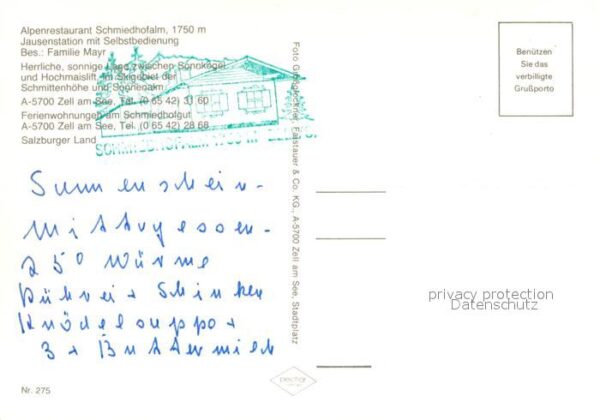 Alpenrestaurant Schmiedhofalm, 1750 m
Jausenstation mit Selbstbedienung
Bes.: Familie Mayr
Herrliche, sonnige Lage zwischen Sonnkogel
und Hochmaislift, im Skigebiet der
Schmittenhöhe und Sonnenalm.
A-5700 Zell am See, Tel. (0 65 42) 31 60
Ferienwohnungen am Schmiedhofgut
A-5700 Zell am See, Tel. (0 65 42) 28 68
Salzburger Land
SCHMIEDHOFALM
Sunnenschein -
Mittagessen -
25° Wärme
Rührei + Schinken
Knödelsuppe +
3 + Buttermilch
Nr. 275
Foto Grossglockner, Falstauer & Co. KG., A-5700 Zell am See, Stadtplatz
Benützen
Sie das
verbilligte
Grußporto
privacy protection
Datenschutz